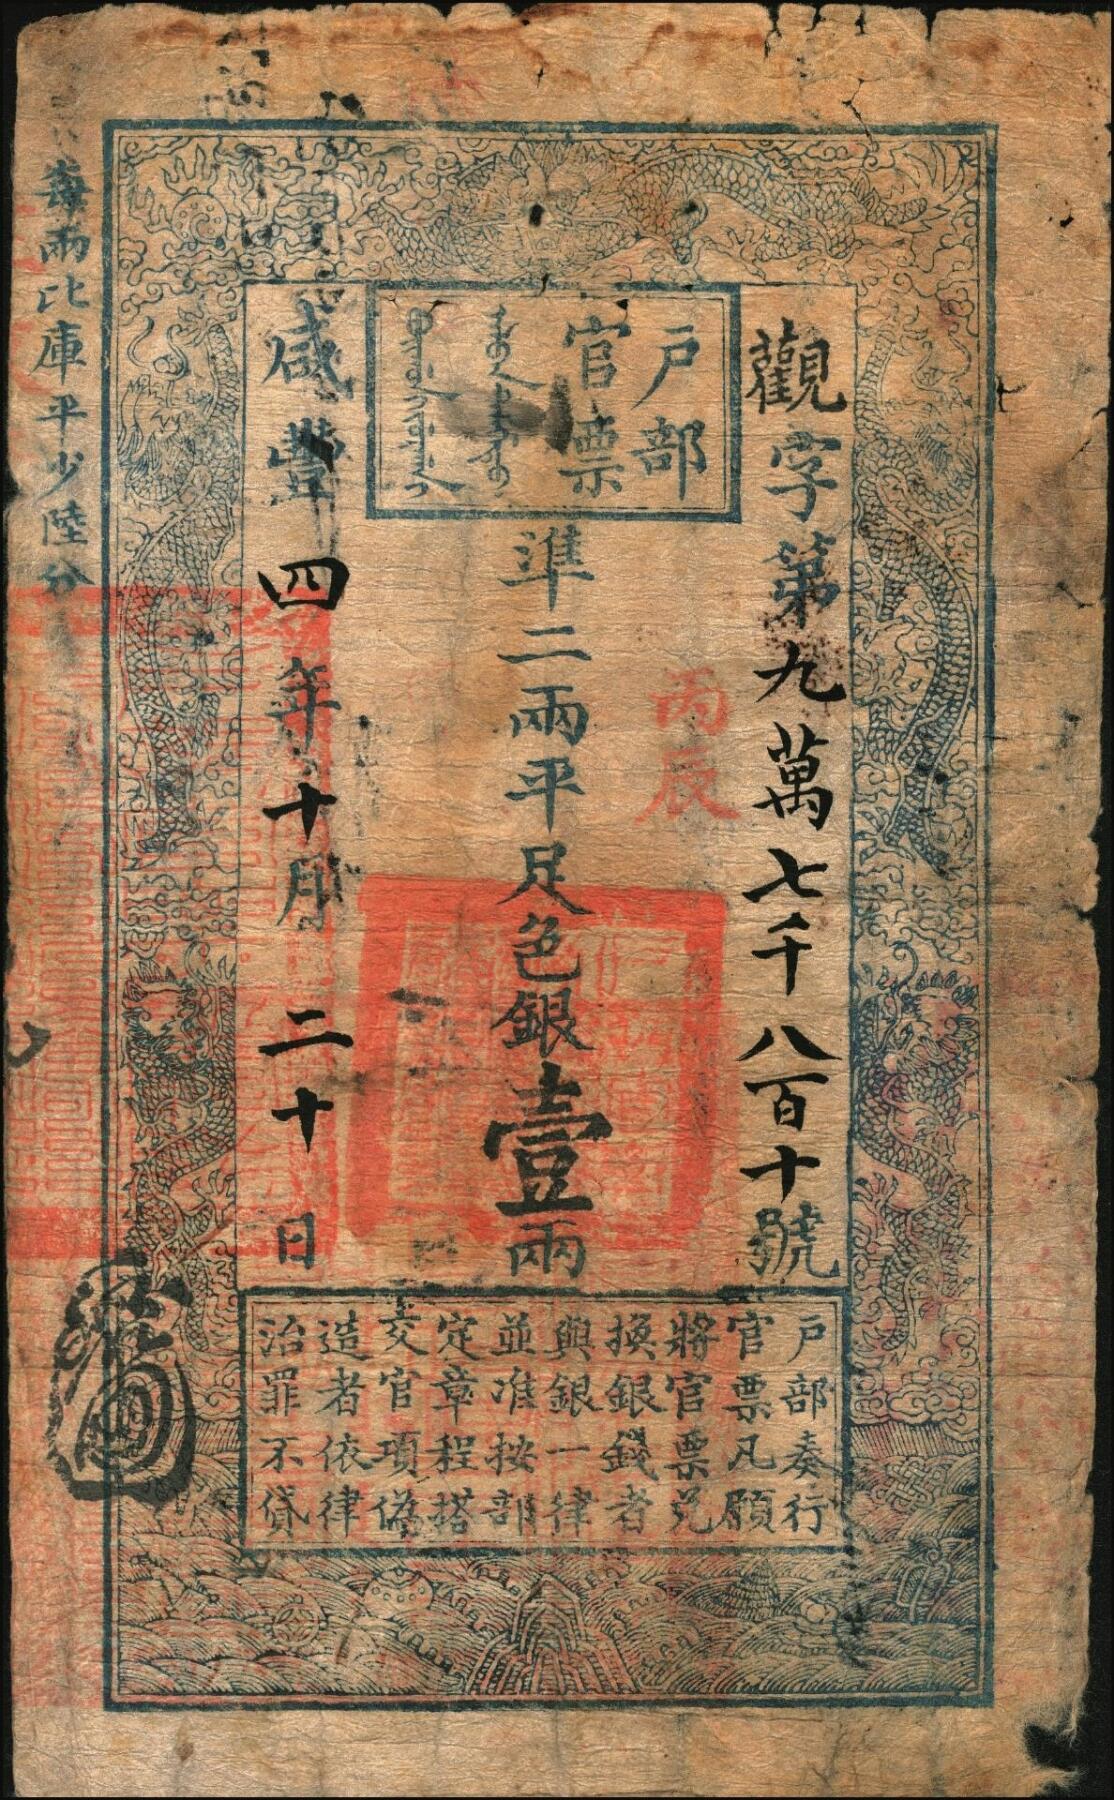 戶部
官票
觀字第九萬七千八百十號
丙辰
準二兩平足色銀壹兩
咸豐四年十月二十日
每兩比庫平少陸分
戶部奏行
官票凡願
將官票兌
換銀錢者
與銀一律
並准按部
定章程搭
交官項偽
造者依律
治罪不貸